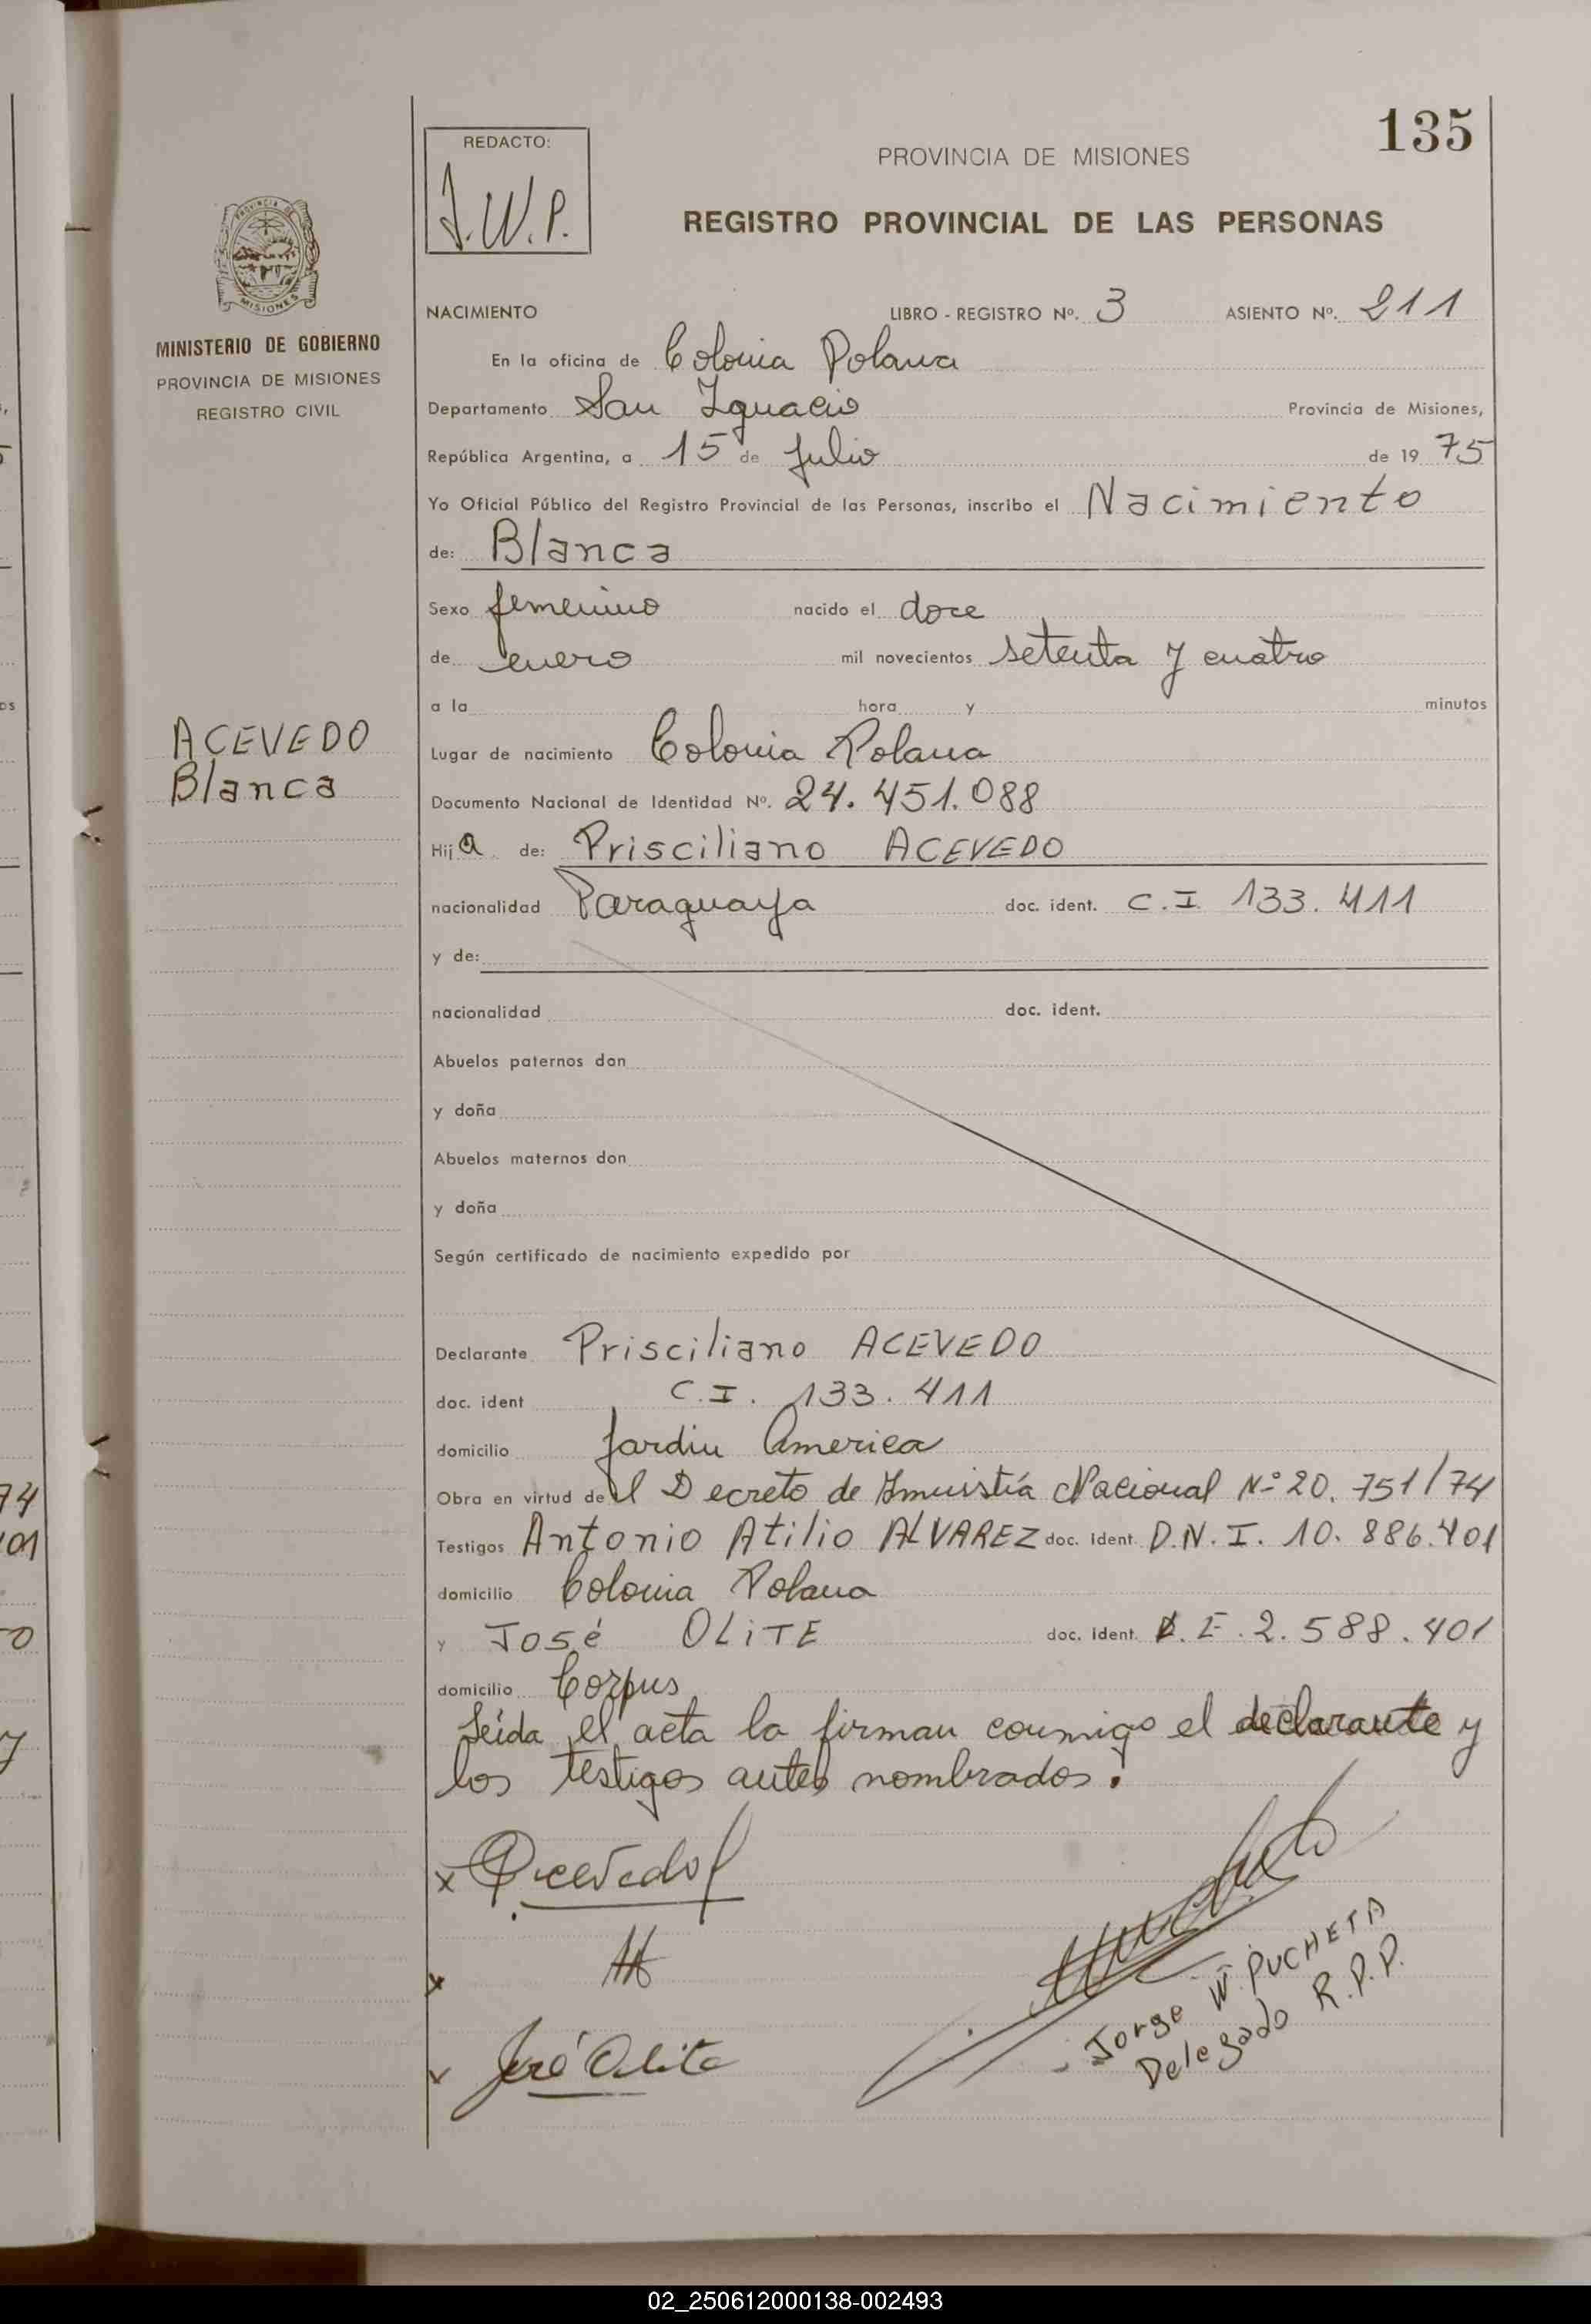 135
REDACTO:
J.W.P.
PROVINCIA DE MISIONES
REGISTRO PROVINCIAL DE LAS PERSONAS
PROVINCIA DE
MISIONES
MINISTERIO DE GOBIERNO
PROVINCIA DE MISIONES
REGISTRO CIVIL
ACEVEDO
Blanca
NACIMIENTO LIBRO - REGISTRO Nº. 3 ASIENTO Nº. 211
En la oficina de Colonia Polana
Departamento San Ignacio Provincia de Misiones,
República Argentina, a 15 de Julio de 19 75
Yo Oficial Público del Registro Provincial de las Personas, inscribo el Nacimiento
de: Blanca
Sexo femenino nacido el doce
de enero mil novecientos setenta y cuatro
a la hora y minutos
Lugar de nacimiento Colonia Polana
Documento Nacional de Identidad Nº. 24.451.088
Hija de: Prisciliano ACEVEDO
nacionalidad Paraguaya doc. ident. C.I. 133.411
y de:
nacionalidad doc. ident.
Abuelos paternos don
y doña
Abuelos maternos don
y doña
Según certificado de nacimiento expedido por
Declarante Prisciliano ACEVEDO
doc. ident C.I. 133.411
domicilio Jardin America
Obra en virtud del Decreto de Amnistía Nacional Nº 20.751/74
Testigos Antonio Atilio ALVAREZ doc. ident. D.N.I. 10.886.401
domicilio Colonia Polana
y José OLiTE doc. ident. 2.588.401
domicilio Corpus
Leída el acta la firman conmigo el declarante y
los testigos antes nombrados.
x Acevedo
x
José Olite
Jorge W. PUCHETA
Delegado R.P.P.
74
01
0
7
02_250612000138-002493